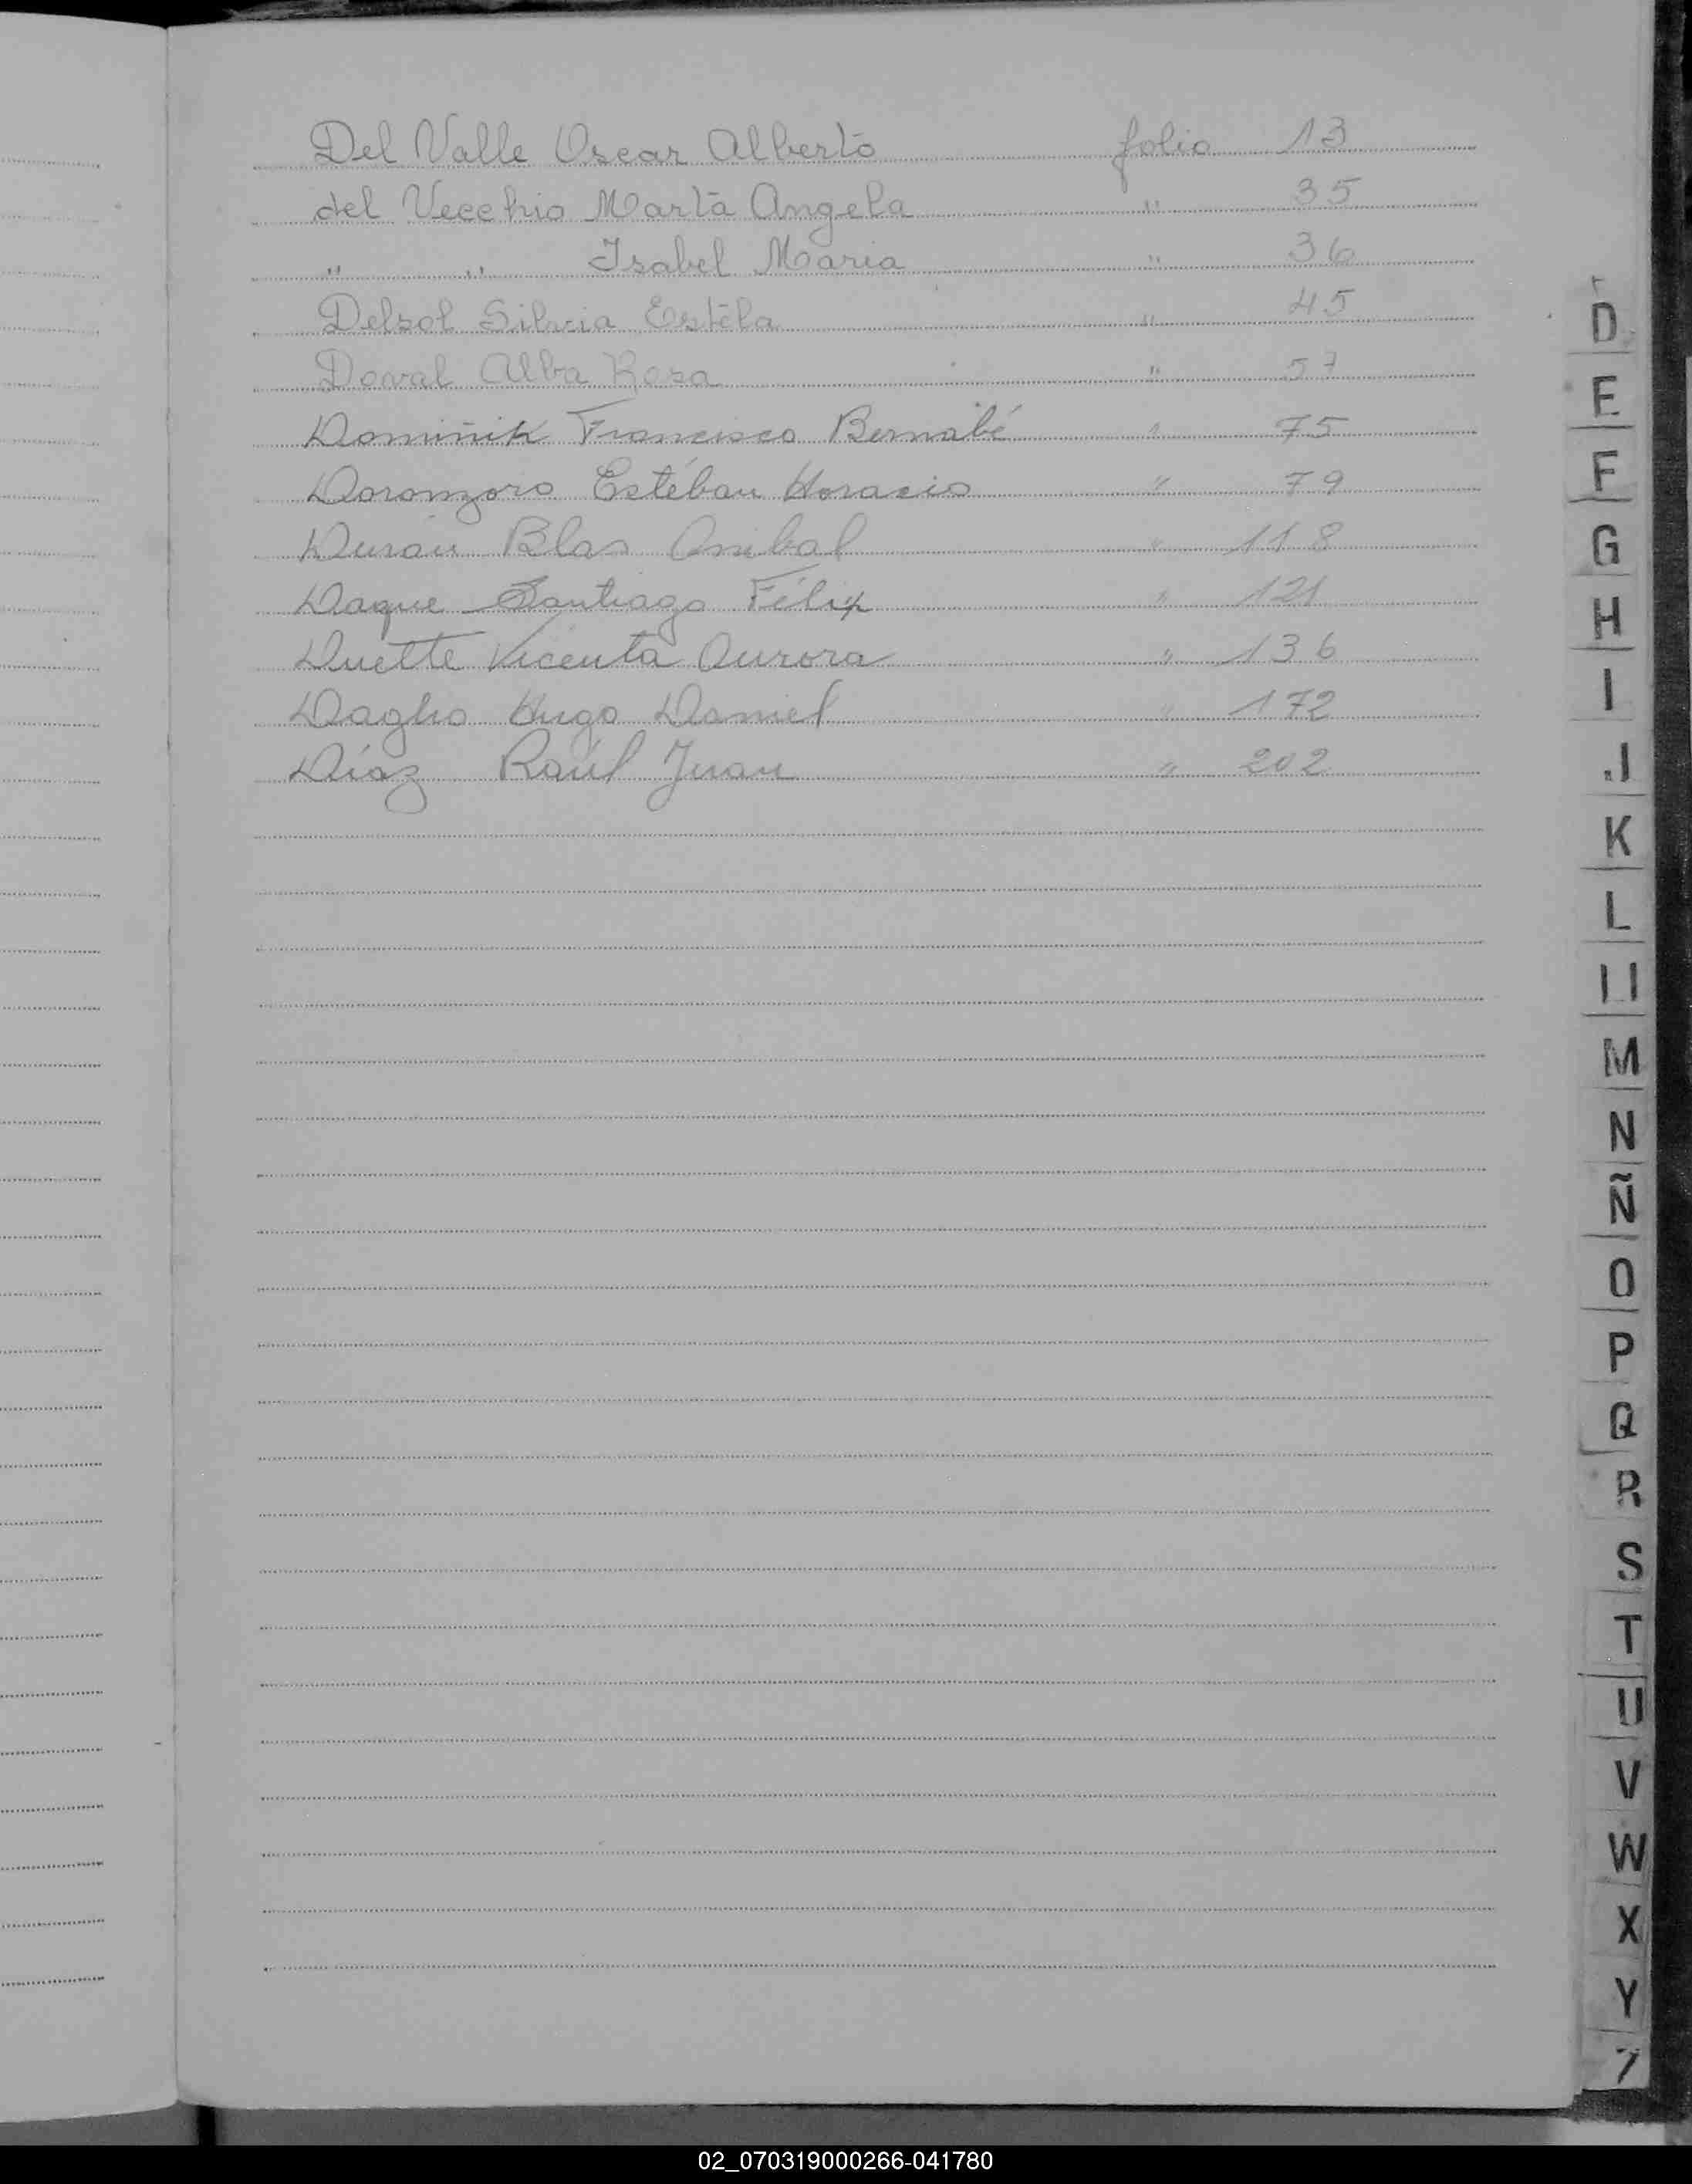 Del Valle Oscar Alberto folio 13
del Vecchio Marta Angela " 35
" " Isabel Maria " 36
Delsol Silvia Estela " 45
Doval Alba Rosa " 57
Dominik Francisco Bernabé " 75
Doronzoro Estéban Horacio " 79
Duran Blas Anibal " 118
Daque Santiago Félix " 121
Duette Vicenta Aurora " 136
Daglio Hugo Daniel " 172
Díaz Raúl Juan " 202
D
E
F
G
H
I
J
K
L
Ll
M
N
Ñ
O
P
Q
R
S
T
U
V
W
X
Y
Z
02_070319000266-041780